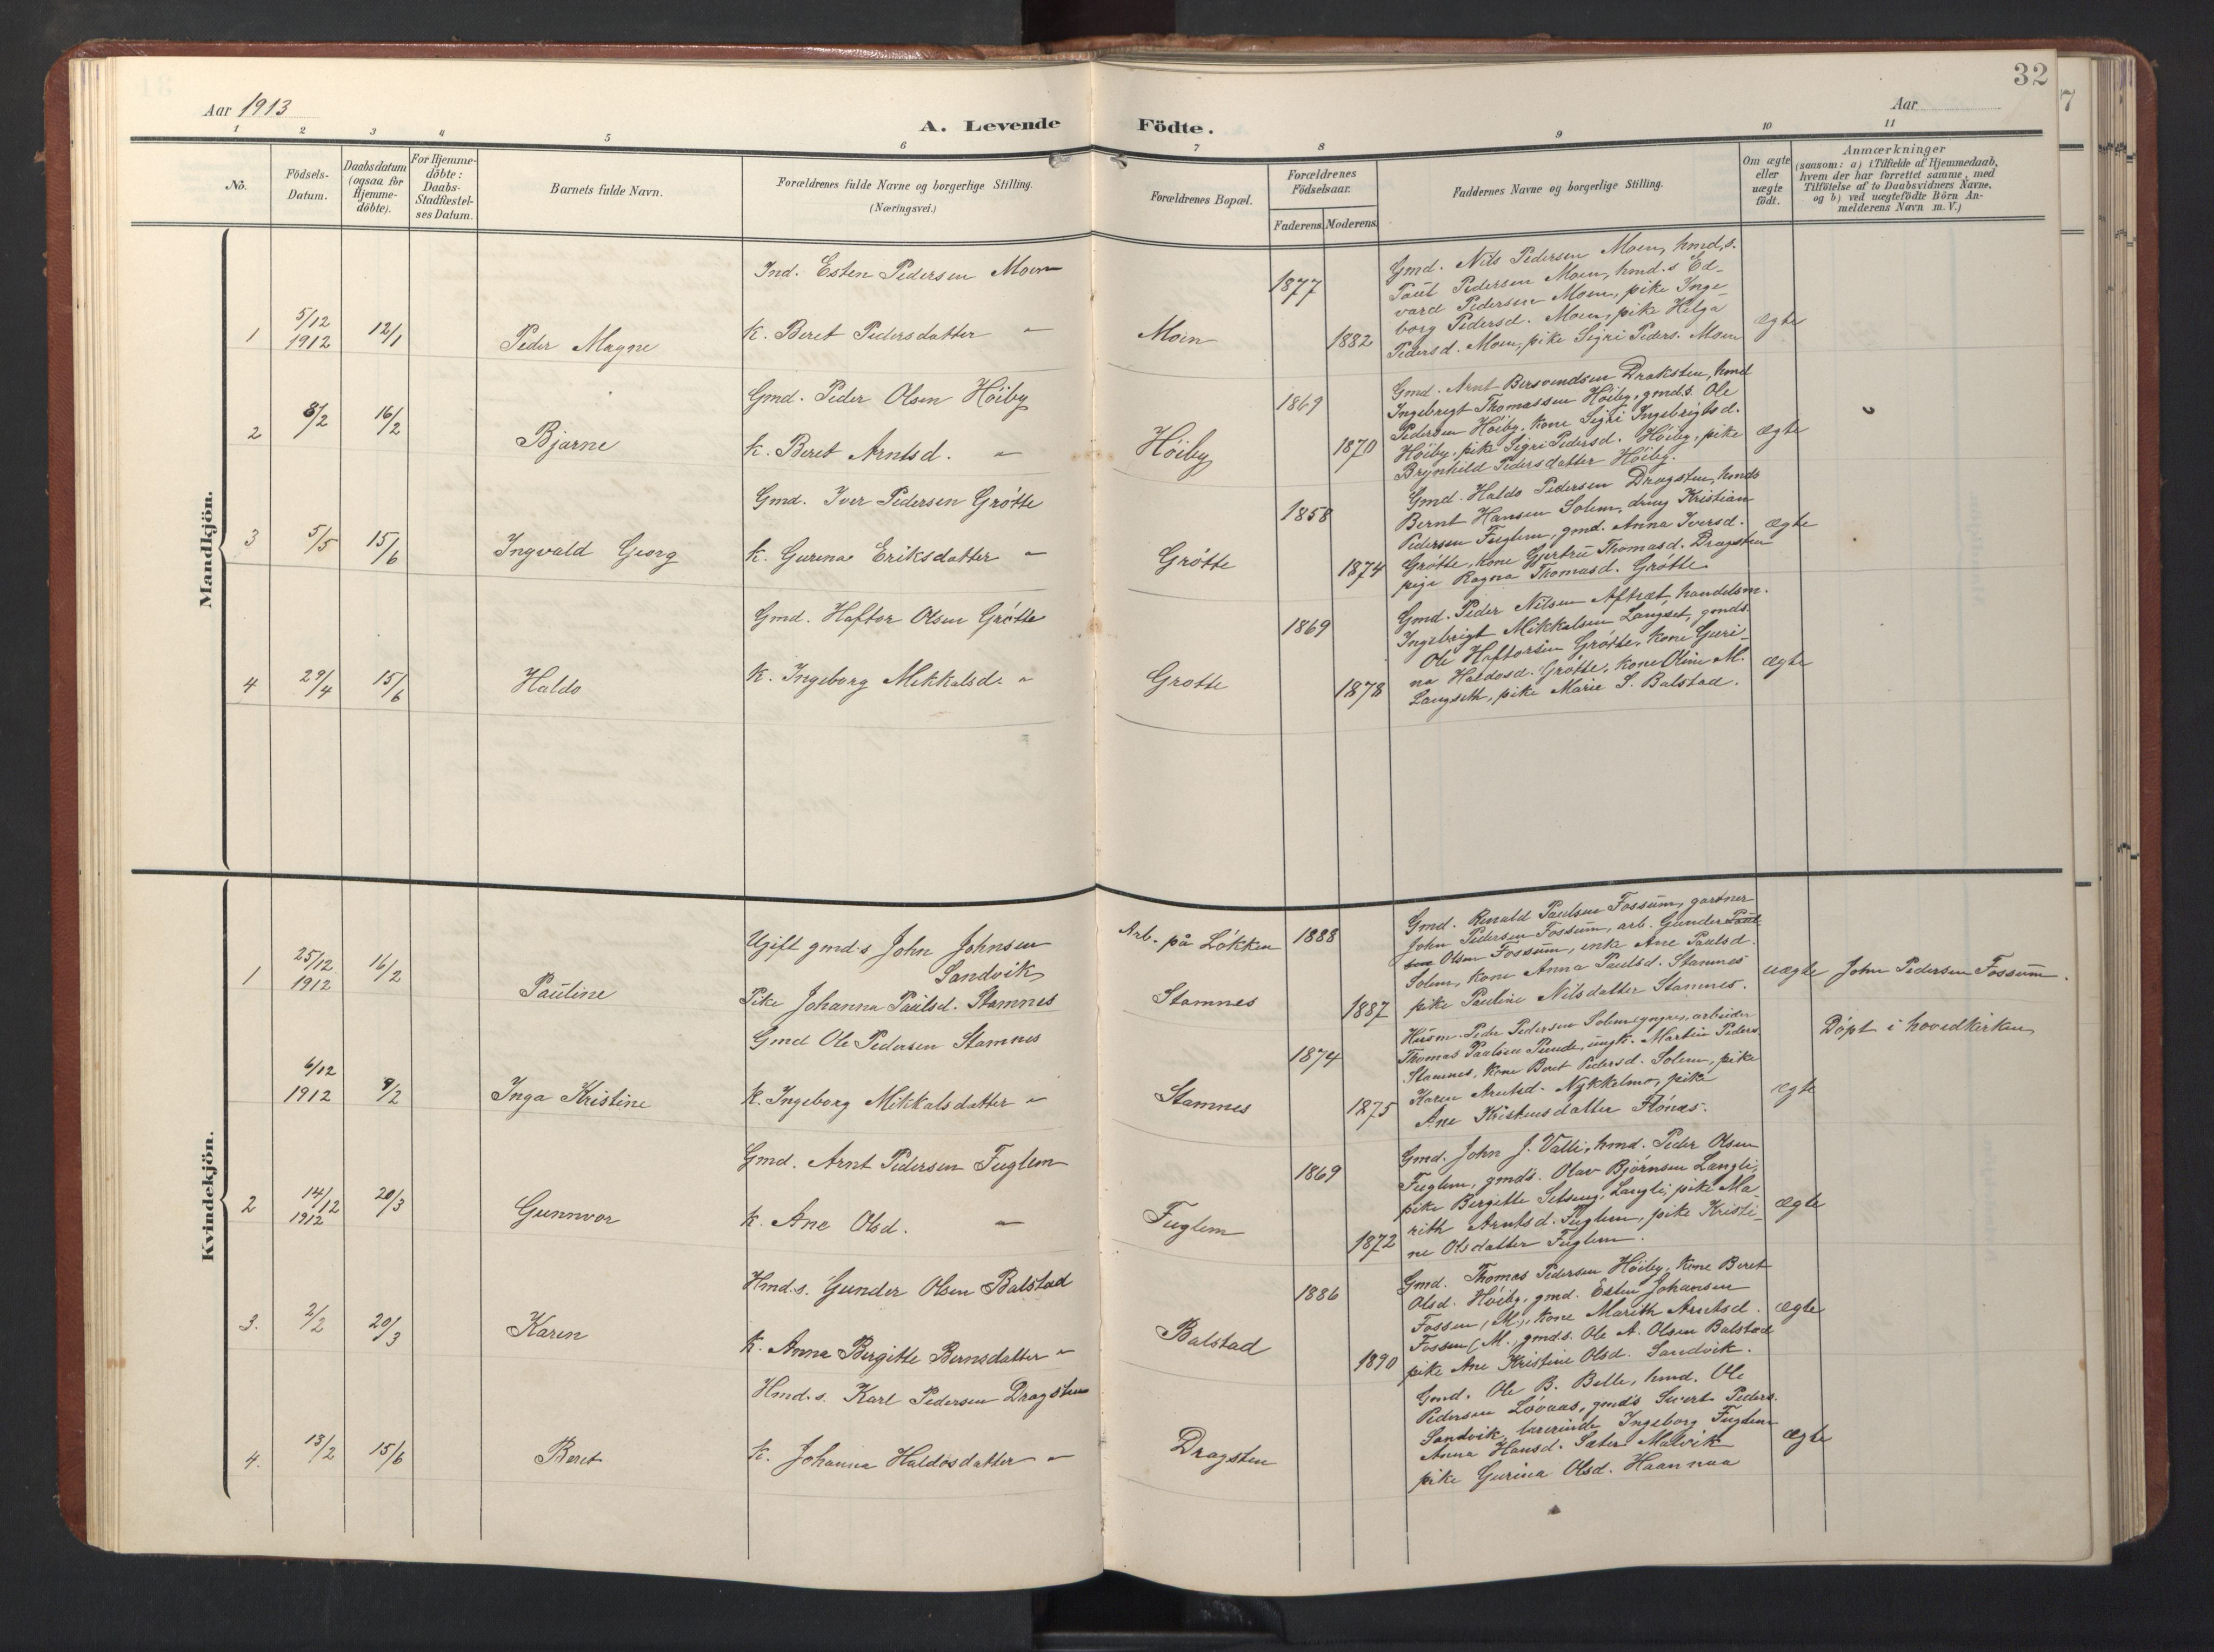 32
Aar 1913
Aar
A. Levende Födte.
1 2 3 4 5 6 7 8 9 10 11
No.
Födsels-Datum.
Daabsdatum (ogsaa for Hjemme-döbte).
For Hjemme-döbte: Daabs-Stadfæstel-ses Datum.
Barnets fulde Navn.
Forældrenes fulde Navne og borgerlige Stilling.
(Næringsvei.)
Forældrenes Bopæl.
Forældrenes Födselsaar.
Faderens. Moderens.
Faddernes Navne og borgerlige Stilling.
Om ægte eller uægte födt.
Anmærkninger
(saasom: a) i Tilfælde af Hjemmedaab,
hvem der har forrettet samme, med
Tilföielse af to Daabsvidners Navne,
og b) ved uægtefödte Börn An-
melderens Navn m. V.)
Mandkjön.
1 5/12 1912 12/1 Peder Magne
Ind. Esten Pedersen Moen
K. Beret Pedersdatter "
Moen
1877
1882
Gmd. Nils Pedersen Moen, hmd.s.
Paul Pedersen Moen, hmd.s Ed-
vard Pedersen Moen, pike Inge-
borg Pedersd. Moen, pike Helga
Pedersd. Moen, pike Sigri Peders. Moen
ægte
2 8/2 16/2 Bjarne
Gmd. Peder Olsen Höiby
K. Beret Arntsd. "
Höiby
1869
1870
Gmd. Arnt Bersvendsen Draksten, hmd
Ingebrigt Thomassen Höiby, gmds. Ole
Pedersen Höiby, kone Sigri Ingebrigtsd.
Höiby, pike Sigri Pedersd. Höiby, pike
Brynhild Pedersdatter Höiby.
ægte
3 5/5 15/6 Ingvald Georg
Gmd. Iver Pedersen Grötte
K. Gurina Eriksdatter "
Grötte
1858
1874
Gmd. Haldo Pedersen Dragsten, hmds
Bernt Hansen Solem, dreng Kristian
Pedersen Fuglem, gmd. Anna Iversd.
Grötte, kone Gjertru Thomasd. Dragsten
pige Ragna Thomasd. Grötte.
ægte
4 29/4 15/6 Haldo
Gmd. Haftor Olsen Grötte
K. Ingeborg Mikkalsd. "
Grotte
1869
1878
Gmd. Peder Nilsen Aftret, handelsm.
Ingebrigt Mikkalsen Langset, gmds.
Ole Haftorsen Grötte, kone Guri-
na Haldosd. Grötte, kone Oline M.
Langseth, pike Marie S. Balstad.
ægte
Kvindekjön.
1 25/12 1912 16/2 Pauline
Ugift gmd.s John Johnsen
Sandvik
Pike Johanna Paulsd. Stamnes
Arb. på Lökken
Stamnes
1888
1887
Gmd. Renald Paulsen Fossum, gartner
John Pedersen Fossum, arb. Gunder Paul
sen Olsen Fossum, enke Ane Paulsd.
Solem, kone Anna Paulsd. Stamnes
pike Pauline Nilsdatter Stamnes.
uægte
John Pedersen Fossum.
6/12 1912 9/2 Inga Kristine
Gmd Ole Pedersen Stamnes
K. Ingeborg Mikkalsdatter "
Stamnes
1874
1875
Husm. Peder Pedersen Solem, arbeider
Thomas Paulsen Punde, ungk. Martin Peders.
Stamnes, kone Beret Pedersd. Solem, pike
Karen Arntsd. Nykkelmo, pike
Ane Kristensdatter Flönes.
ægte
Döpt i hovedkirken
2 14/12 1912 20/3 Gunnvor
Gmd. Arnt Pedersen Fuglem
K. Ane Olsd. "
Fuglem
1869
1872
Gmd. John J. Valli, hmd. Peder Olsen
Fuglem, gmds. Olav Bjørnsen Langli,
pike Bergitte Langli, pike Ma-
rith Arntsd. Fuglem, pike Kristi-
ne Olsdatter Fuglem.
ægte
3. 2/2 20/3 Karen
Hmd.s. Gunder Olsen Balstad
K. Anna Bergitte Bernsdatter "
Balstad
1886
1890
Gmd. Thomas Pedersen Höiby, kone Beret
Olsd. Höiby, gmd. Esten Johansen
Fossen (M.), kone Marith Arntsd.
Fossen (M.), gmds. Ole A. Olsen Balstad
pike Ane Kristine Olsd. Sandvik.
ægte
4. 13/2 15/6 Beret
Hmd.s. Karl Pedersen Dragsten
K. Johanna Haldosdatter "
Dragsten
Gmd. Ole B. Belle, hmd. Ole
Pedersen Lövaas, gmds Sivert Peders.
Sandvik, lærerinde Ingeborg Fuglem
Anna Hansd. Sæter Malvik
pike Gurina Olsd. Haannaa
ægte